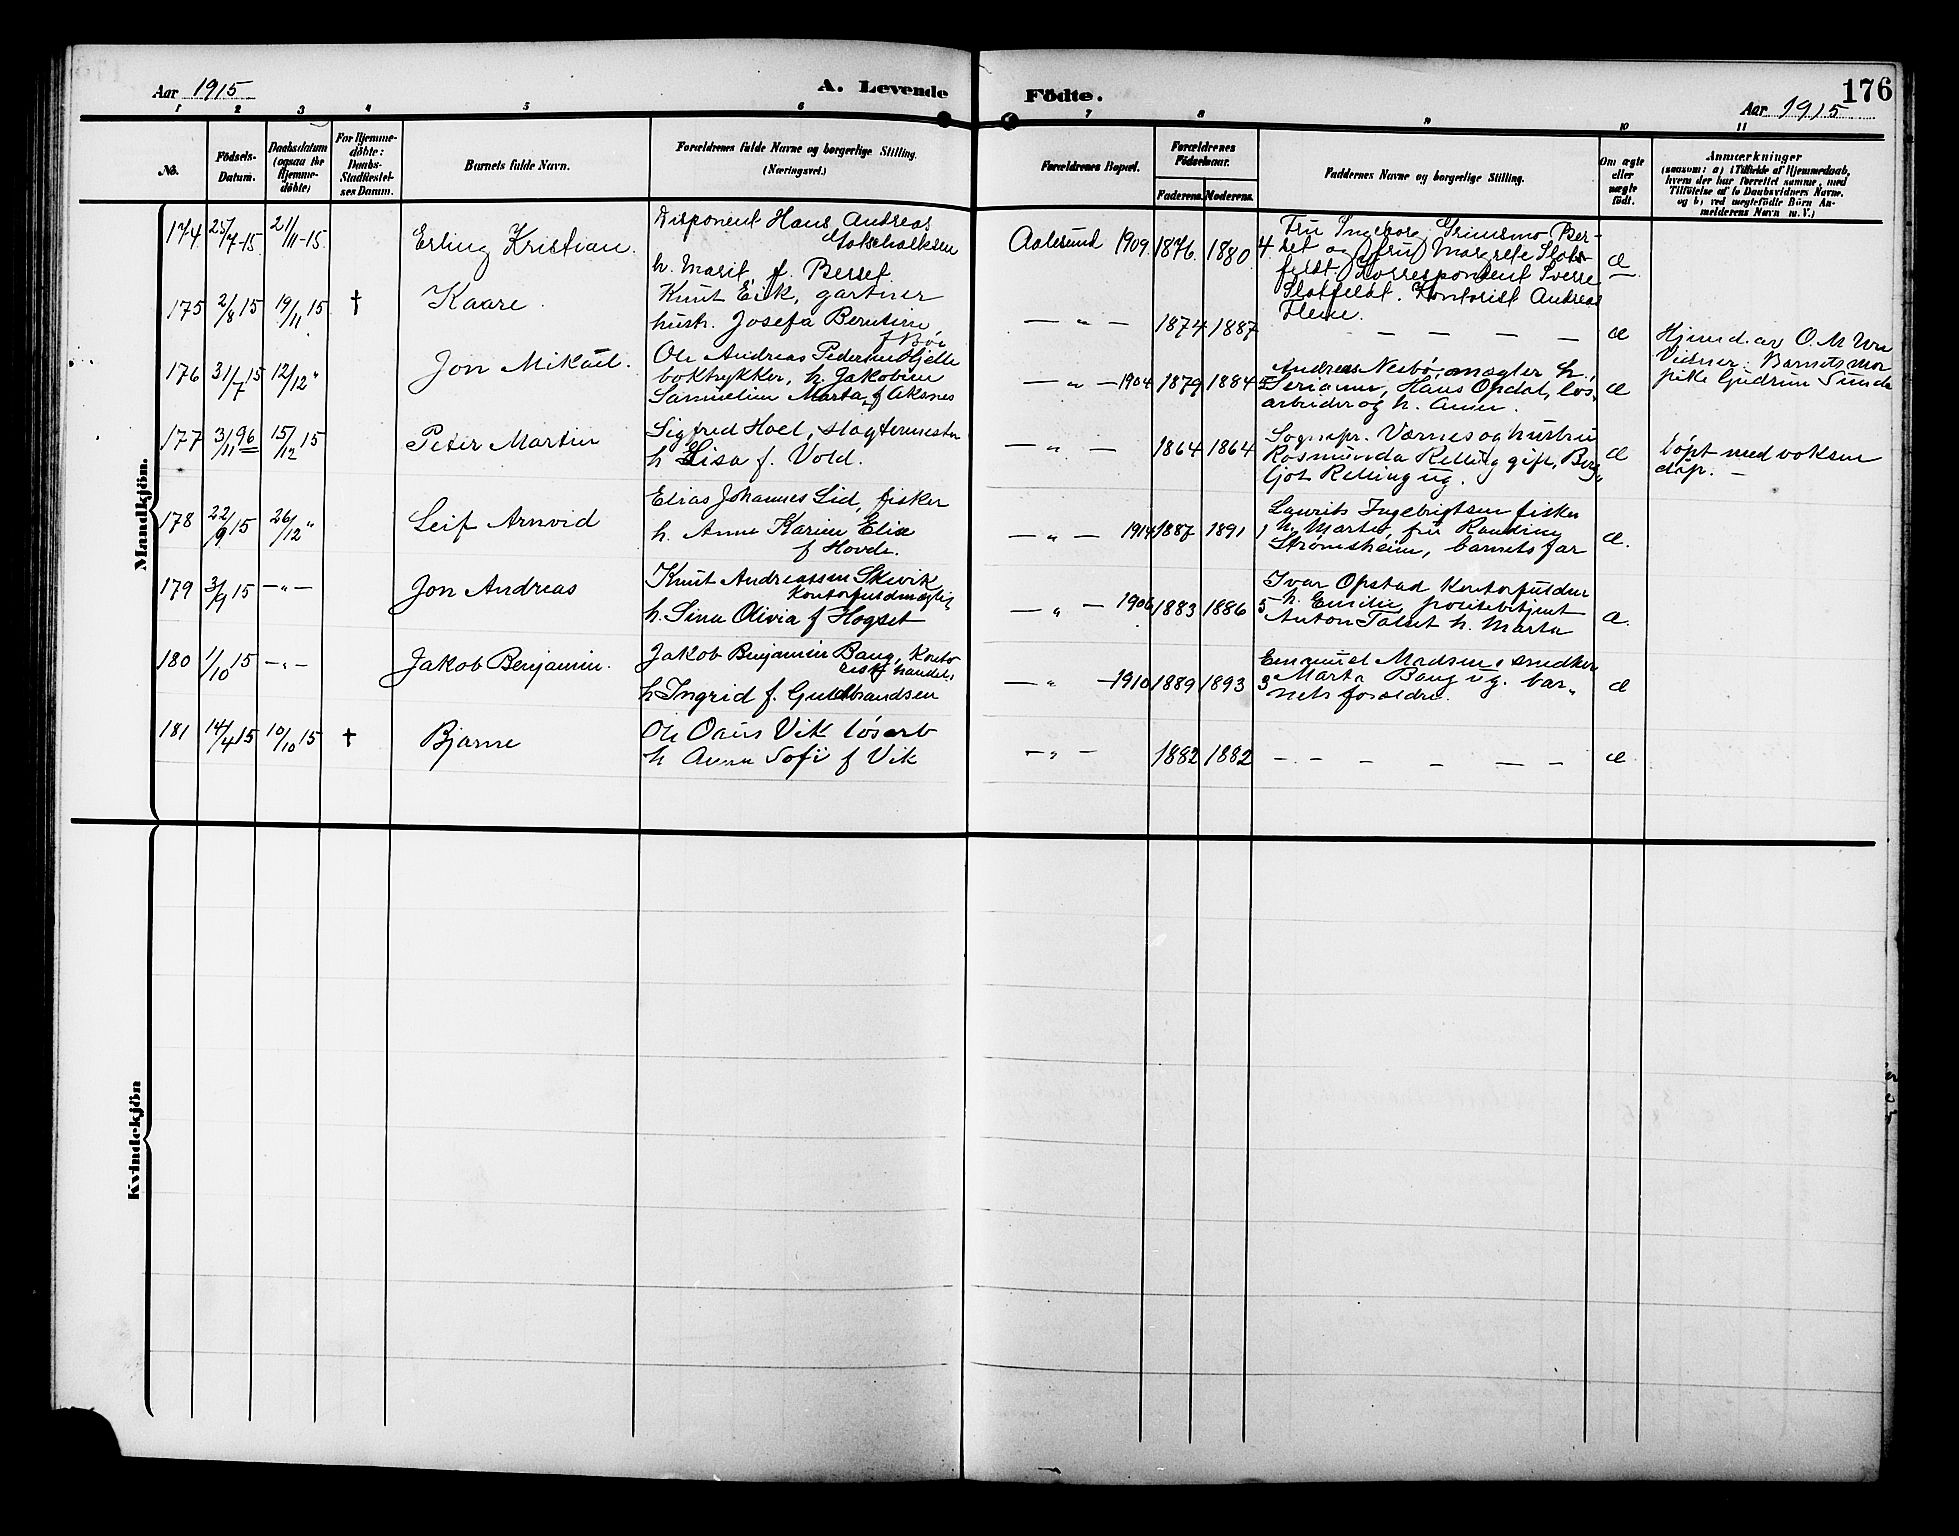 Aar 1915
A. Levende Födte.
176
Aar 1915
1 2 3 4 5 6 7 8 9 10 11
No.
Födsels-
Datum.
Daabsdatum
(ogsaa for
Hjemme-
döbte)
For Hjemme-
döbte:
Daabs-
Stadfæstel-
ses Datum.
Barnets fulde Navn.
Forældrenes fulde Navne og borgerlige Stilling.
(Næringsvei.)
Forældrenes Bopæl.
Forældrenes
Födselsaar.
Faderens. Moderens.
Faddernes Navne og borgerlige Stilling.
Om ægte
eller
uægte
födt.
Anmærkninger
(saasom: a) i Tilfælde af Hjemmedaab,
hvem der har forrettet samme, med
Tilföielse af to Daabsvidners Navne.
og b) ved uægtefödte Börn An-
melderens Navn m. V.)
Mandkjön.
174 25/7-15 21/11-15 Erling Kristian.
Disponent Hans Andreas
Gotschalksen
h. Marit f. Berset
Aalesund 1909 1876 1880 4
Fru Ingeborg Grimsmo Ber-
set og fru Margrete Slot-
feldt Korrespondent Sverre
Slotfeldt. Kontorist Andreas
æ
175 2/8 15 19/11 15 † Kaare.
Knut Eik, gartner
hustr. Josefa Berntine
f Bøe
— " — 1874 1887 — — — — æ
Hjemd. av O. M
Barnets mor
pike Gudrun Sunde
176 31/7 15 12/12 " Jon Mikael.
Ole Andreas Pedersen Hjelle
boktrykker, h. Jakobine
Samueline Marta f Aksnes
— " — 1904 1879 1884 5
Andreas Nesbø, mægler h.
Serianne, Hans Opdal, løs-
arbeider og h. Anne.
æ
177 3/11 96 15/12 15 Peter Martin
Sigfred Hoel, slagtermester
h Lisa f. Vold.
— " — 1864 1864
Sognepr. Værnes og hustru
Rosmunda Relling gift, Berg-
ljot Relling ug.
æ
døpt med voksen
dåp. —
178 22/9 15 26/12 " Leif Arnvid
Elias Johannes Lid, fisker
h. Anne Karine Elise
f Hovde.
— " — 1914 1887 1891 1
Laurits Ingebrigtsen fisker
h. Marta, fru Randine
Strømsheim, barnets far
æ.
179 3/9 15 — " — Jon Andreas
Knut Andreassen Skivik
kontorfuldmægtig
h. Sina Olivia f Hogset
— " — 1906 1883 1886 5
Ivar Opstad Kontorfuldm
h. Emilie, politibetjent
Anton Talset h. Marta
æ.
180 1/10 15 — " — Jakob Benjamin.
Jakob Benjamin Baug, Konto
rist handels
h Ingrid f. Guldbrandsen
— " — 1910 1889 1893 3
Emanuel Madsen, snedker
Marta Baug ug. bar-
nets forældre.
æ
181 14/4 15 10/10 15 † Bjarne
Ole Vik løsarb
h Anna Sofi f Vik
— " — 1882 1882 — — — — — — æ
Kvindekjön